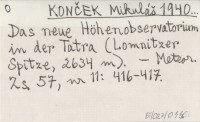 O KONČEK Mikuláš 1940...
Das neue Höhenobservatorium
in der Tatra (Lomnitzer
Spitze, 2634 m). – Meteor.
Zs, 57, nr 11: 416-417.